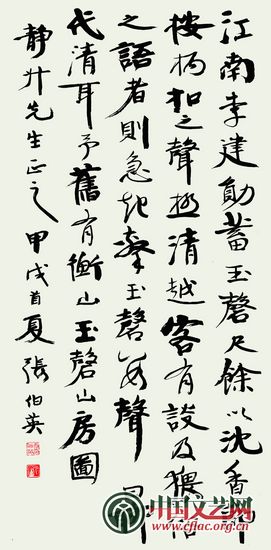 江南李建勛蓄玉磬尺餘以沈香節
按柄扣之聲極清越客有談及猥俗
之語者則急起擊玉磬數聲曰
代清耳予舊有衡山玉磬山房圖
靜升先生正之 甲戌首夏 張伯英
中国文艺网
www.cflac.org.cn